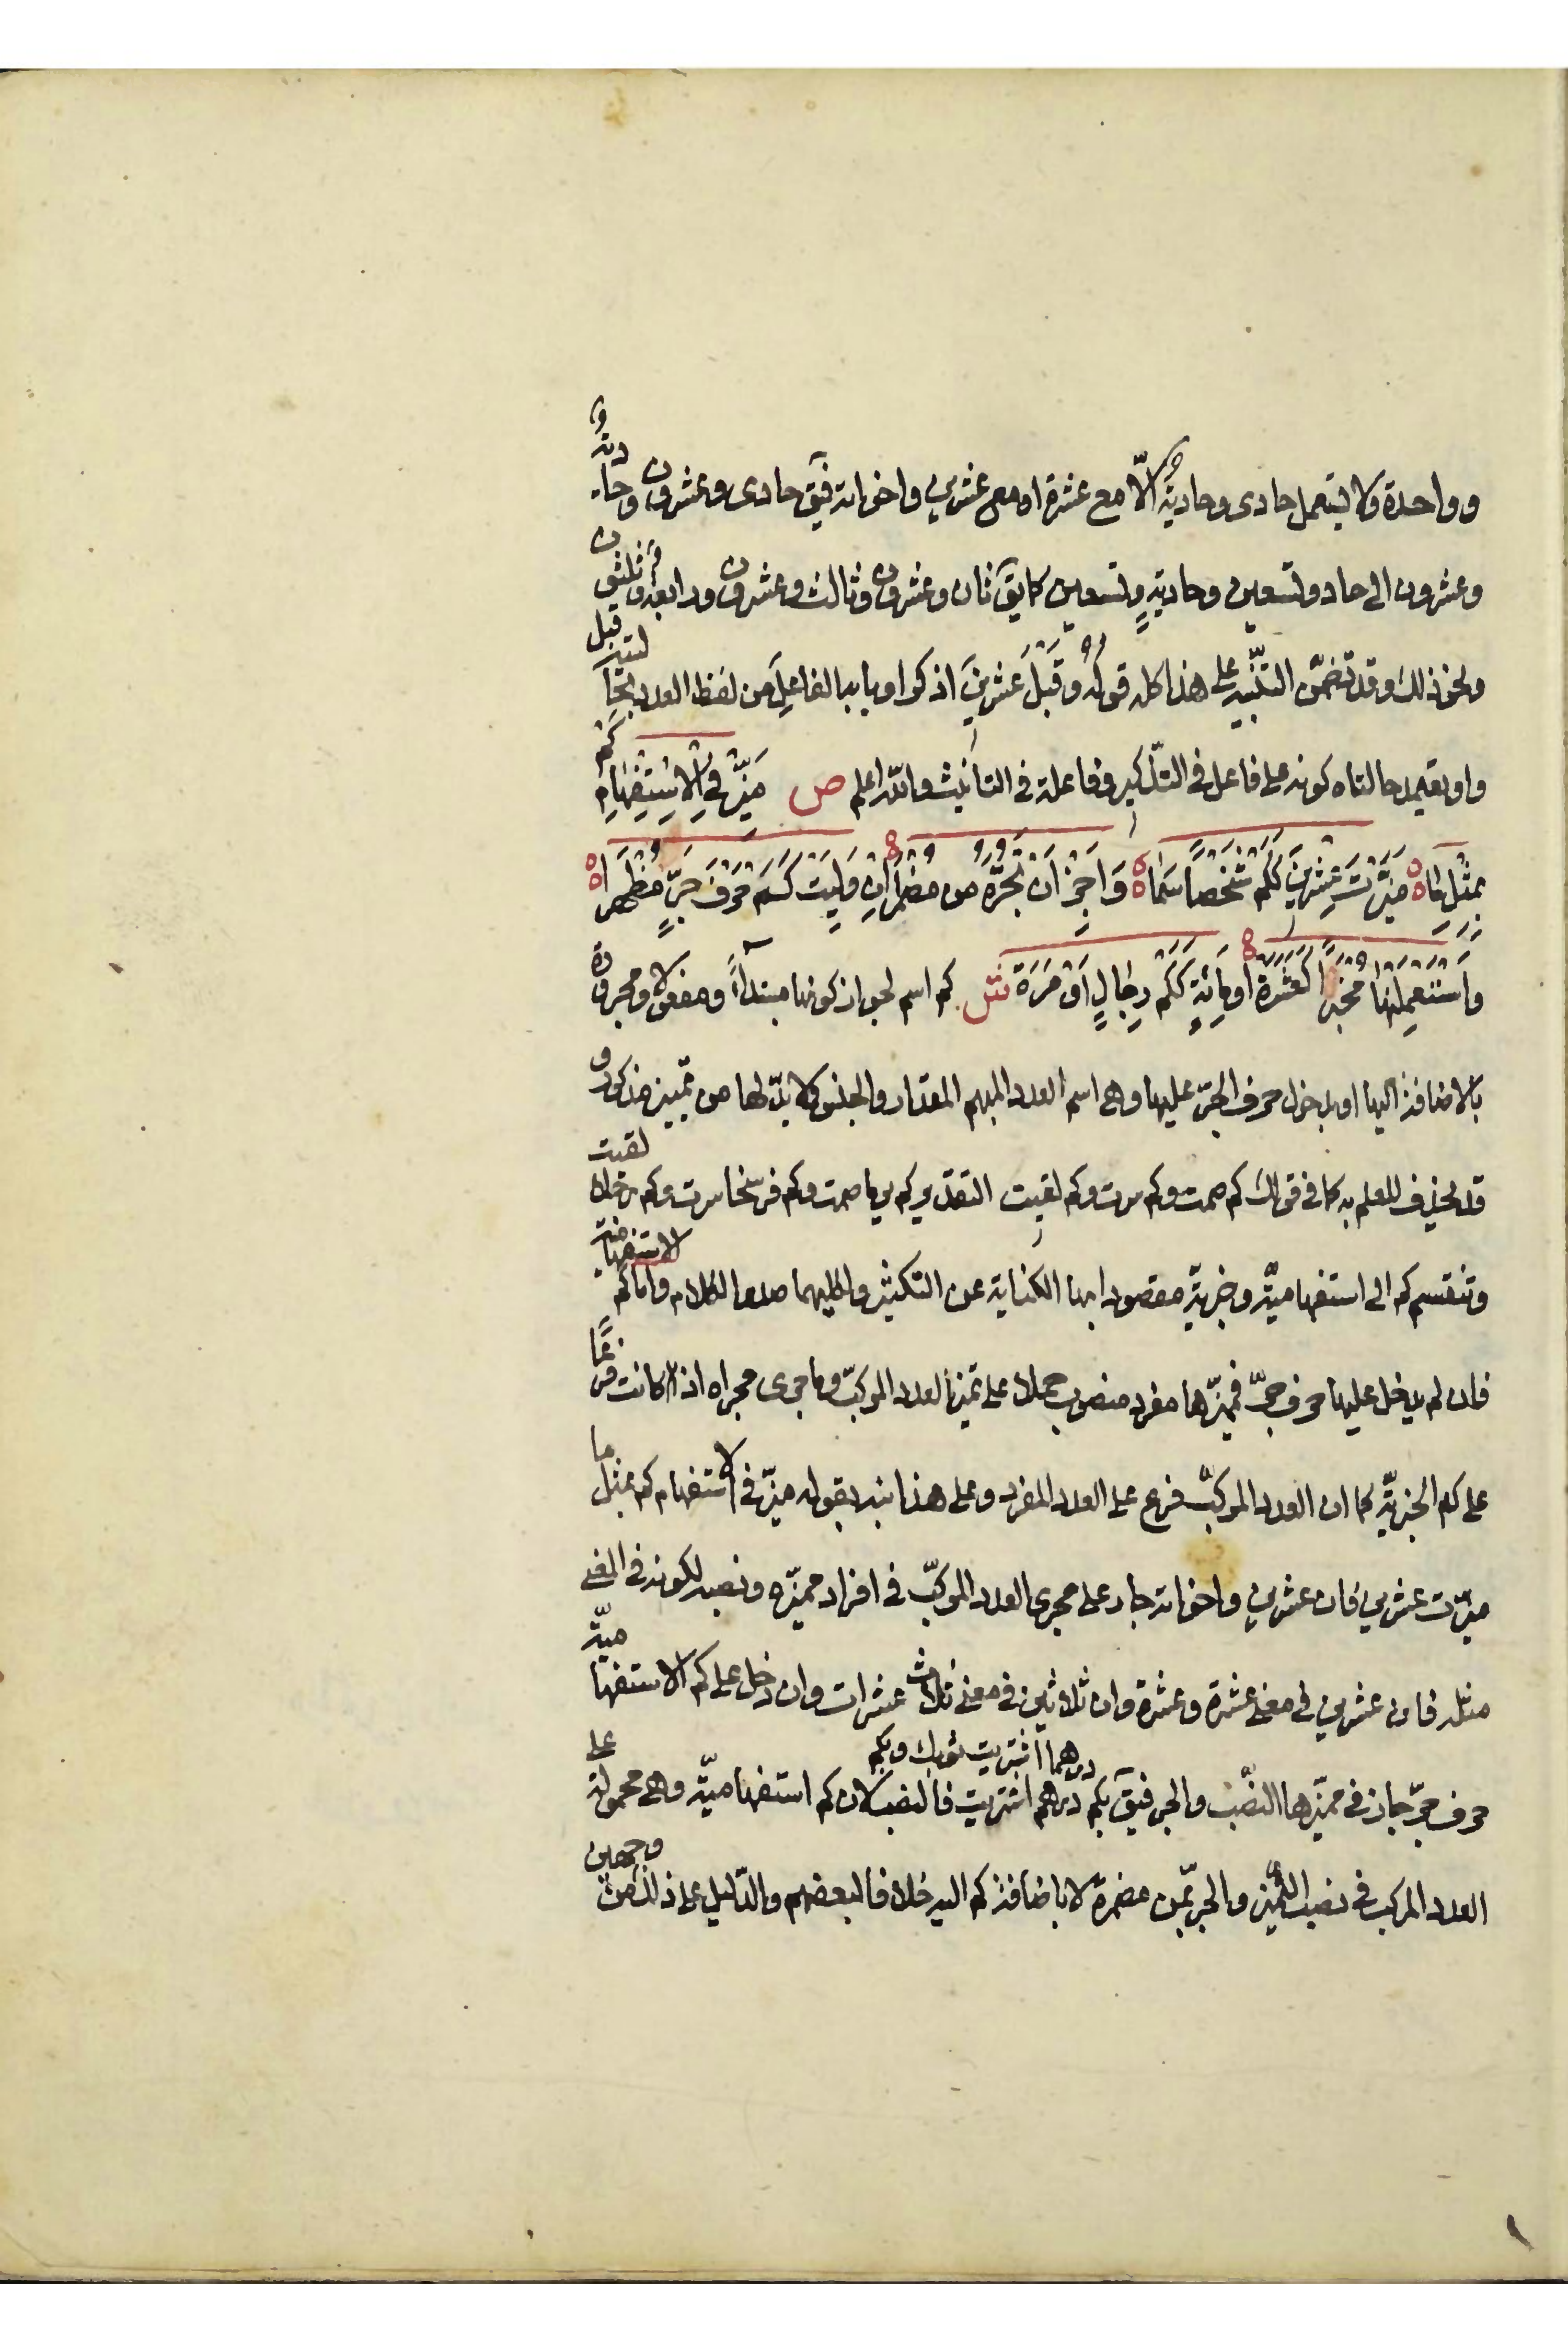 وواحدة ولا يستعمل حادى وحادية الّا مع عشرة او مع عشرين واخواته فيقَ حادى وعشرون وحادية
وعشرون الى حاد وتسعين وحاديةٍ وتسعين كما يقَ ثان وعشرون وثالث وعشرون ورابعة وثلثون
ونحو ذلك وقد تضمّن التنبيه على هذا كله قوله وَقَبْلَ عِشْرِينَ اذكرا وبابه الفاعلِ من لفظ العدد بحالتيه قبل
واو يعتمد حالتاه كونه على فاعل فى التذكير وفاعلة فى التأنيث والله اعلم ص مَيِّزْ فِي الْاِسْتِفْهَامِ كَمْ
بِمِثْلِ مَا مَيَّزْتَ عِشْرِينَ كَكَمْ شَخْصاً سَمَا وَاَجِزْ اَنْ تَجُرَّهُ مِن مُضْمَراً اِن وَلِيَتْ كَمْ حَرْفَ جَرٍّ مُظْهَرَا
وَاسْتَعْمِلَنْهَا مُخْبِراً كَعَشَرَة اَوْ مِائَةٍ كَكَمْ رِجَالٍ اَوْ مَرَة ش كم اسم لجواز كونها مبتدأً ومفعولا ومجرورة
بالاضافة اليها او بدخول حرف الجرّ عليها وهى اسم لعدد المبهم المقدار والجنس ولا بدّ لها من تمييز مذكور و
قد يحذف للعلم به كما فى قولك كم صمت وكم سرت وكم لقيت التقدير كم يوما صمت وكم فرسخا سرت وكم رجلا لقيت
وتنقسم كم الى استفهاميّة وخبريّة مقصود ابها الكناية عن التكثير ولكليهما صدر الكلام واما كم الاستفهامية
فان لم يدخل عليها حرف جرّ فمميّزها مفرد منصوب حملا على تميز العدد المركّب وما جرى مجراه اذ كانت فرعًا
على كم الخبريّة كما ان العدد المركّب فرع على العدد المفرد وعلى هذا نبه بقوله ميّز فى الاستفهام كم بمثل ما
ميّزت عشرين فان عشرين واخواته جار على مجرى العدد المركّب فى افراد مميّزه ونصبه لكونه فى المعنى
مثله فان عشرين فى معنى عشرة وعشرة وان ثلاثين فى معنى ثلاث عشرات وان دخل على كم الاستفهاميّة
حرف جرّ جاز فى مميّزها النصب والجر فيقَ بكم درهما اشتريت ثوبك وبكم درهم اشتريت فالنصب لان كم استفهاميّة وهى محمولة على
العدد المركب فى نصب المميّز والجر بمن مضمرة لا باضافة كم اليه خلافا لبعضهم والدّليل على ذلك من وجهين